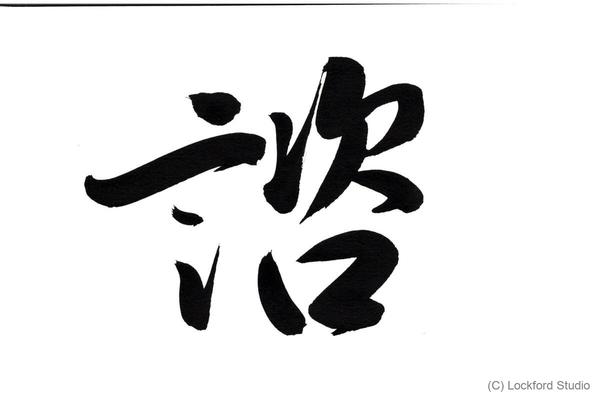 諮
(C) Lockford Studio